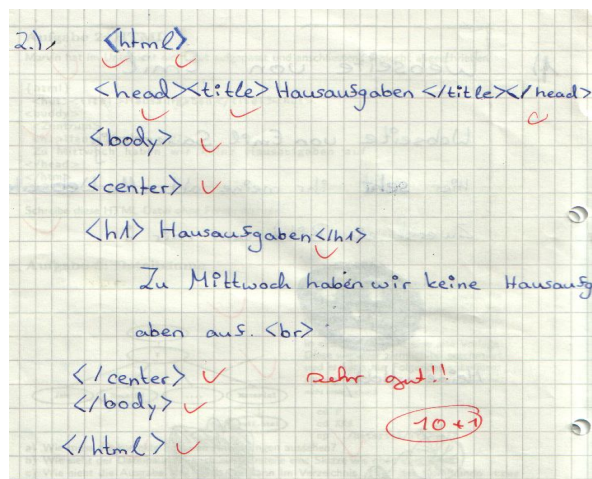 2.), <html>
<head><title> Hausausfgaben </title></head>
<body>
<center>
<h1> Hausausfgaben </h1>
Zu Mittwoch haben wir keine Hausausfg
aben auf. <br>
</center> sehr gut!!
</body>
10+1
</html>